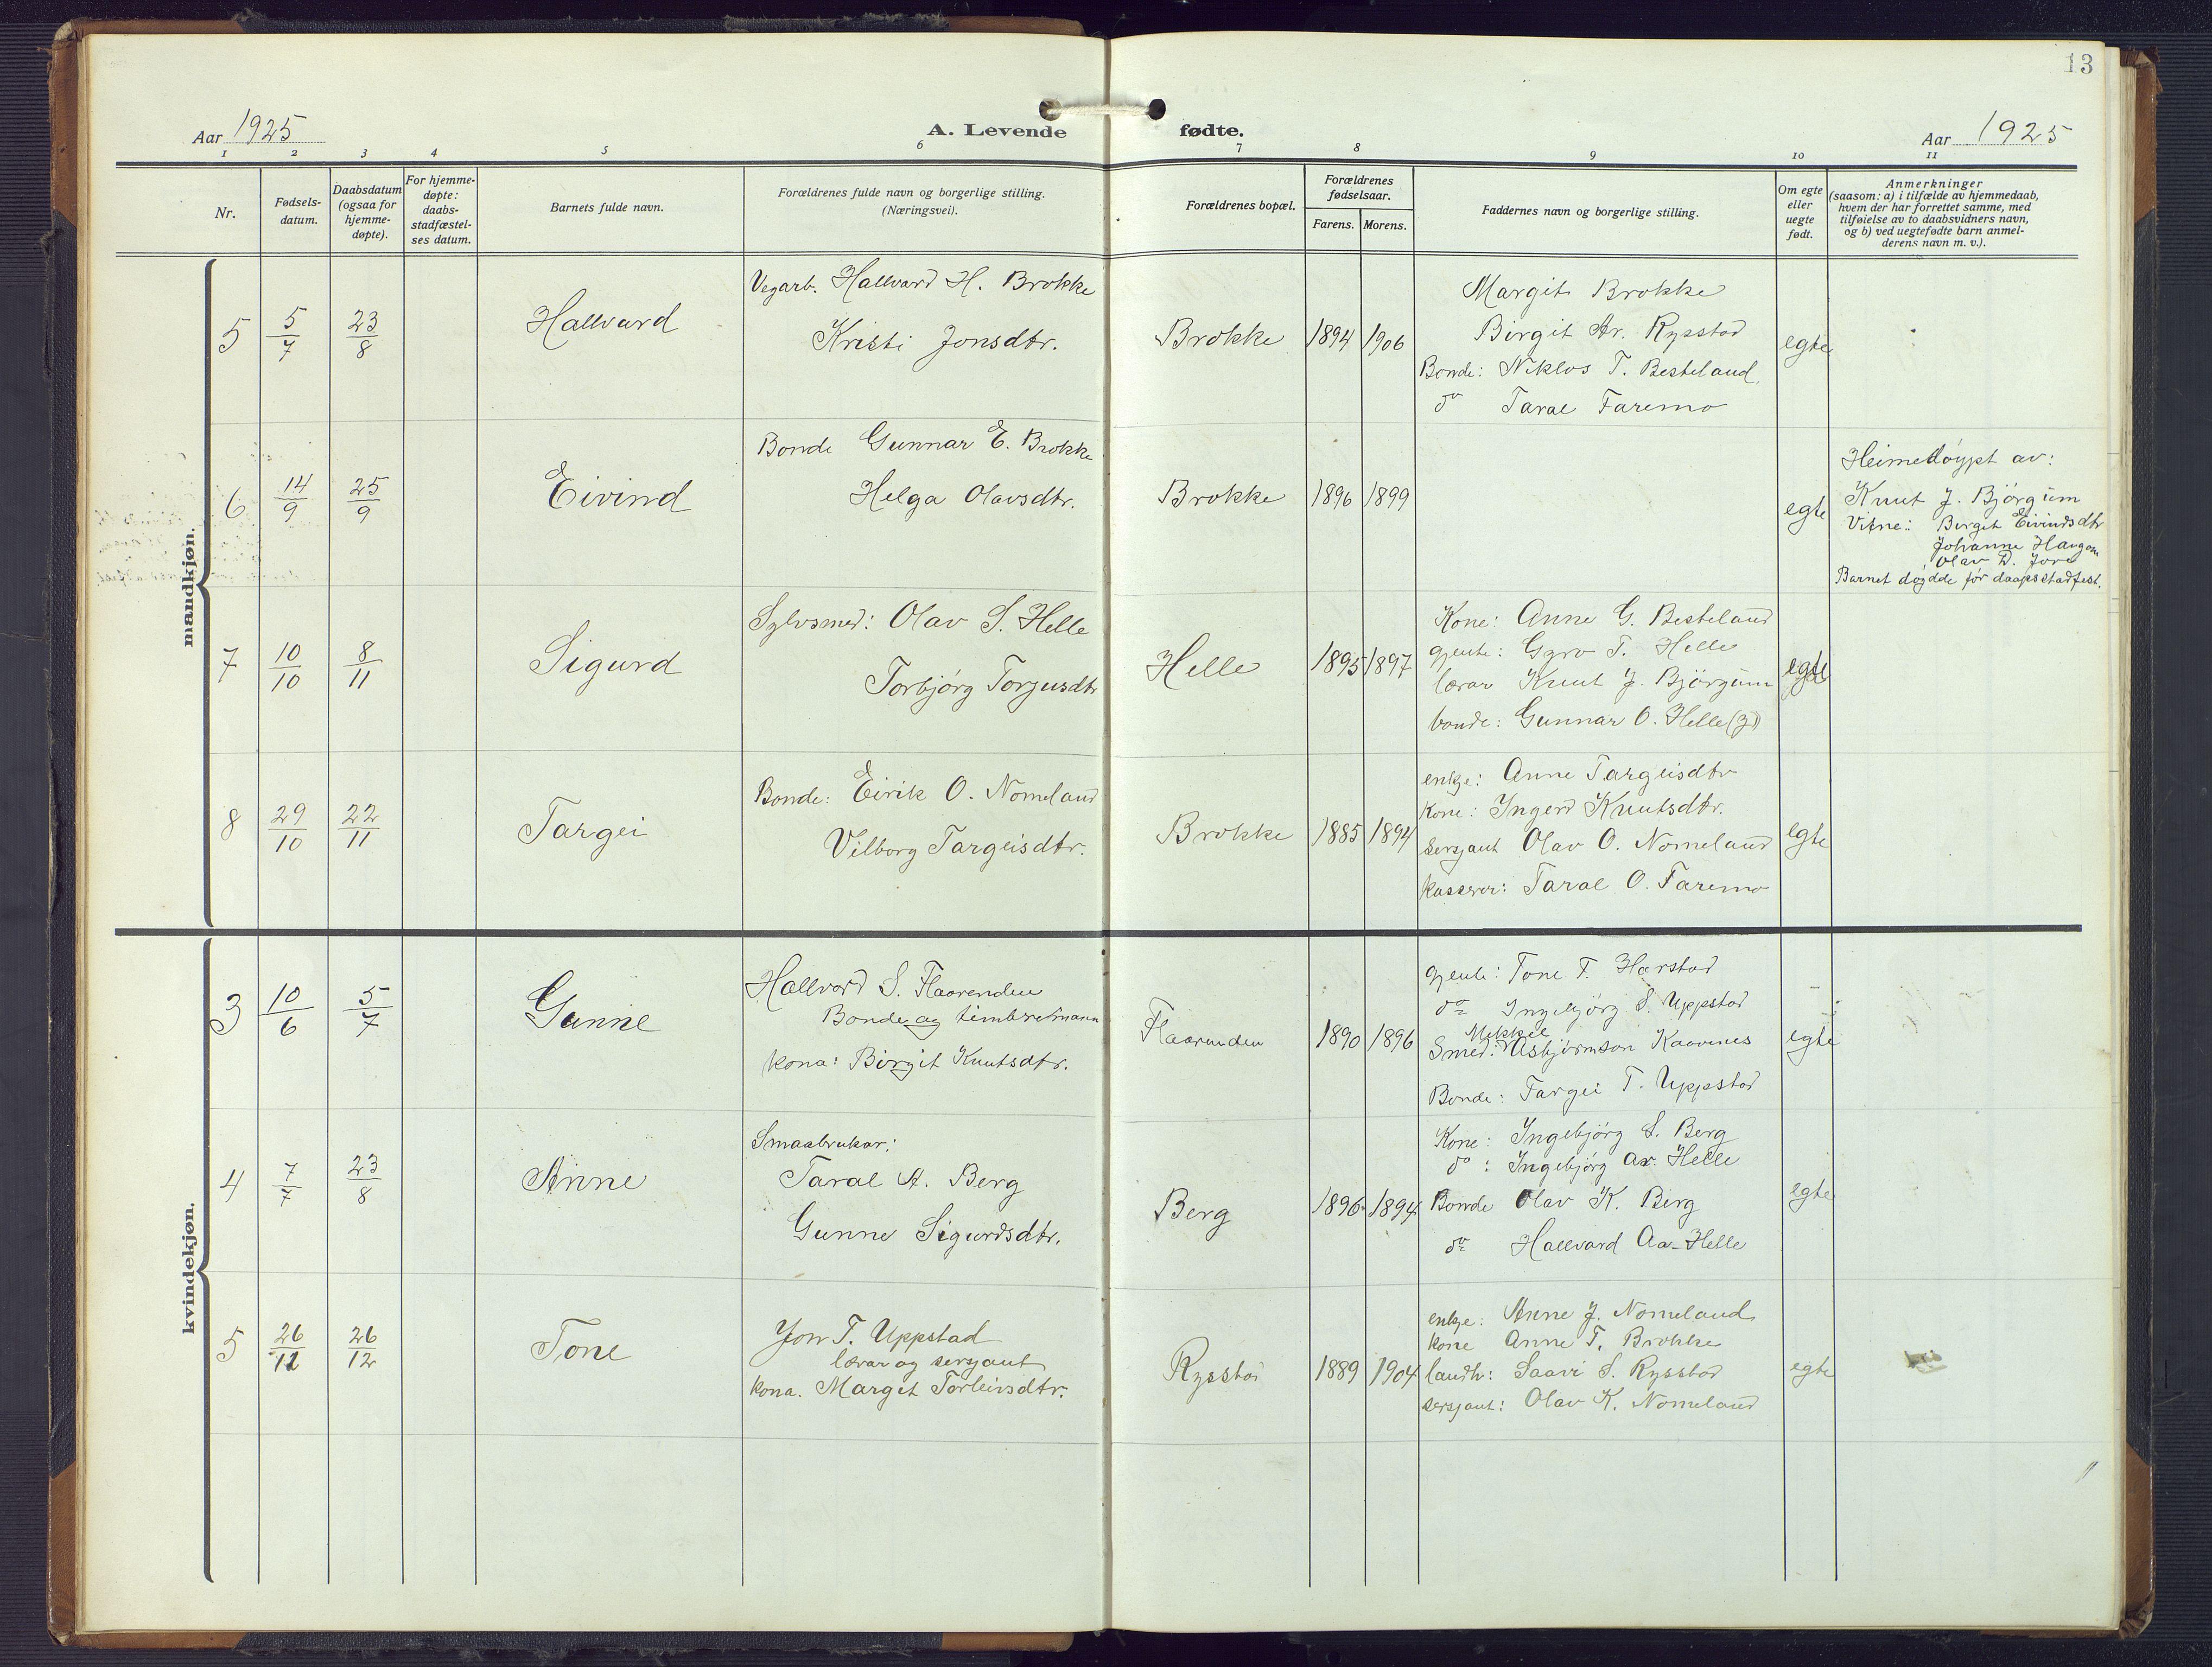 13
Aar 1925
A. Levende fødte.
Aar 1925
1 2 3 4 5 6 7 8 9 10 11
Nr.
Fødselsdatum.
Daabsdatum (ogsaa for hjemmedøpte).
For hjemmedøpte: daabsstadfæstelses datum.
Barnets fulde navn.
Forældrenes fulde navn og borgerlige stilling. (Næringsvei).
Forældrenes bopæl.
Forældrenes fødselsaar.
Farens. Morens.
Faddernes navn og borgerlige stilling.
Om egte eller uegte født.
Anmerkninger
(saasom: a) i tilfælde av hjemmedaab,
hvem der har forrettet samme, med
tilføielse av to daabsvidners navn,
og b) ved uegtefødte barn anmelderens navn m. v.).
mandkjøn.
5 5/7 23/8 Hallvard
Vegarb. Hallvard H. Brokke
Kristi Jonsdtr.
Brokke 1894 1906
Margit Brokke
Birgit Ar. Rysstad
Bonde: Niklos T. Besteland
do Taral Faremo
egte
6 14/9 25/9 Eivind
Bonde Gunnar E. Brokke
Helga Olavsdtr.
Brokke 1896 1899
egte
Heimedøypt av:
Knut J. Bjørgum
Vitne: Birgit Eivindsdtr
Johanne Haugom
Olav D. Jore
Barnet døydde før daapsstadfest.
7 10/10 8/11 Sigurd
Sylvsmed: Olav S. Helle
Torbjørg Torgusdtr
Helle 1895 1897
Kone: Anne G. Besteland
gjente: Gyro T. Helle
lærar Knut J. Bjørgum
bonde: Gunnar O. Helle
egte
8 29/10 22/11 Targei
Bonde: Eirik O. Nomeland
Vilborg Targeisdtr.
Brokke 1885 1894
enkje: Anne Targeisdtr
kone: Ingerd Knutsdtr.
sersjant Olav O. Nomeland
kasserer: Taral O. Faremo
egte
kvindekjøn.
3 10/6 5/7 Gunne
Hallvord S. Flaarenden
Bonde og timbremann
kona: Birgit Knutsdtr.
Flaarenden 1890 1896
gjente: Tone T. Harstad
do Ingebjørg S. Uppstad
Mikkel
Smed: Asbjørnson Kaavenes
Bonde: Targei T. Uppstad
egte
4 7/7 23/8 Anne
Smaabrukar:
Taral A. Berg
Gunne Sigurdsdtr.
Berg 1896 1894
Kone: Ingebjørg S. Berg
do: Ingebjørg Aa. Helle
Bonde Olav K. Berg
do Hallvard Aa. Helle
egte
5 26/11 26/12 Tone
Jon T. Uppstad
lærar og sersjant
kona. Margit Torleivsdtr.
Rysstad 1889 1904
enkje: Anne J. Nomeland
kone Anne T. Brokke
landh: Saavi S. Rysstad
sersjant: Olav K. Nomeland
egte